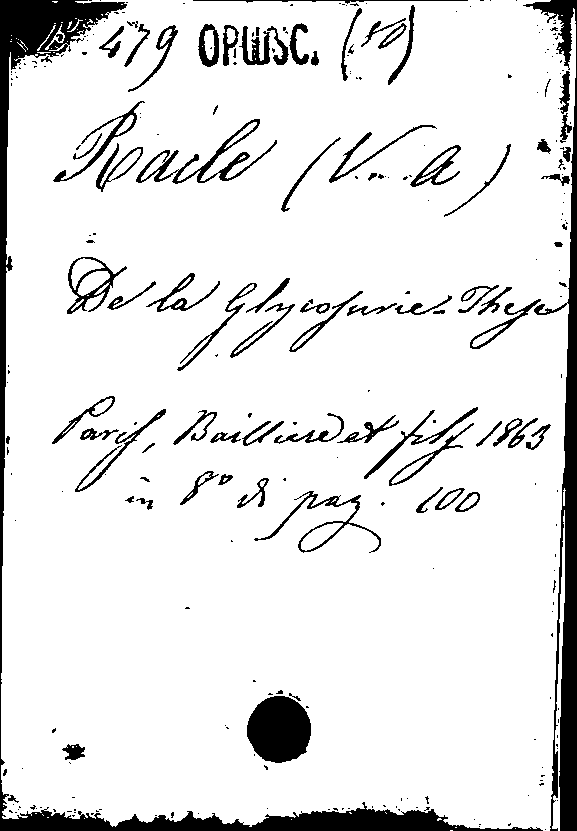 B. 479 OPUSC. (50)
Racle (V. A)
De la Glycosurie - These
Paris, Bailliere et fils 1863
in 8° di pag. 100